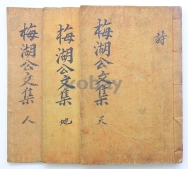 詩
梅湖公文集
天
梅湖公文集
地
梅湖公文集
人